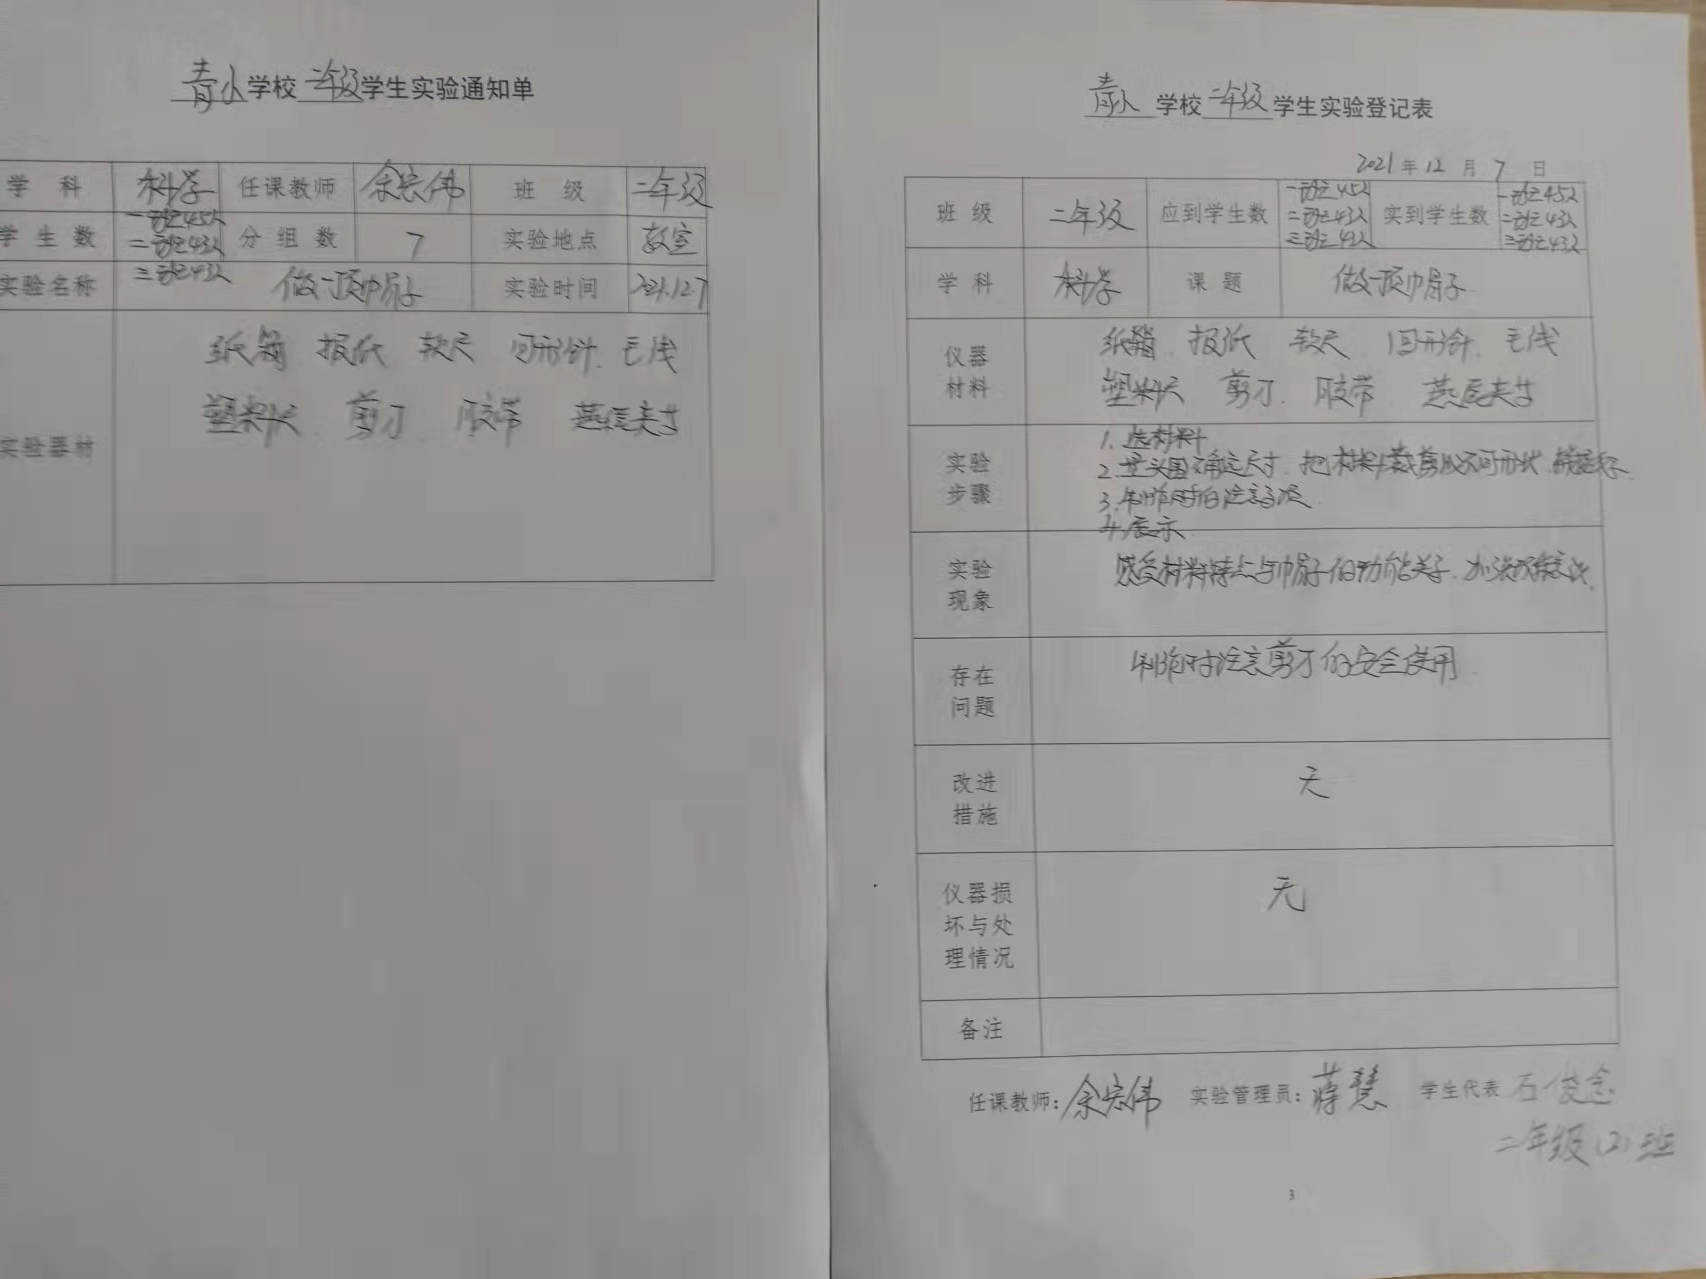 青小学校二年级学生实验通知单
学科 科学 任课教师 余宏伟 班级 二年级
学生数 一班45人 二班43人 三班43人 分组数 7 实验地点 教室
实验名称 做一顶帽子 实验时间 2021.12.7
实验器材
纸箱 报纸 软尺 回形针 毛线
塑料尺 剪刀 胶带 燕尾夹等
青小学校二年级学生实验登记表
2021年12月7日
班级 二年级 应到学生数 一班45人 二班43人 三班43人 实到学生数 一班45人 二班43人 三班43人
学科 科学 课题 做一顶帽子
仪器材料
纸箱 报纸 软尺 回形针 毛线
塑料尺 剪刀 胶带 燕尾夹等
实验步骤
1. 选材料
2. 量头围确定尺寸. 把材料裁剪成不同形状.
3. 制作时的注意事项
4. 展示
实验现象
感受材料特点与帽子的功能关系.
存在问题
制作时注意剪刀的安全使用
改进措施 无
仪器损坏与处理情况 无
备注
任课教师: 余宏伟 实验管理员: 蒋慧 学生代表 石俊念
二年级(2)班
3